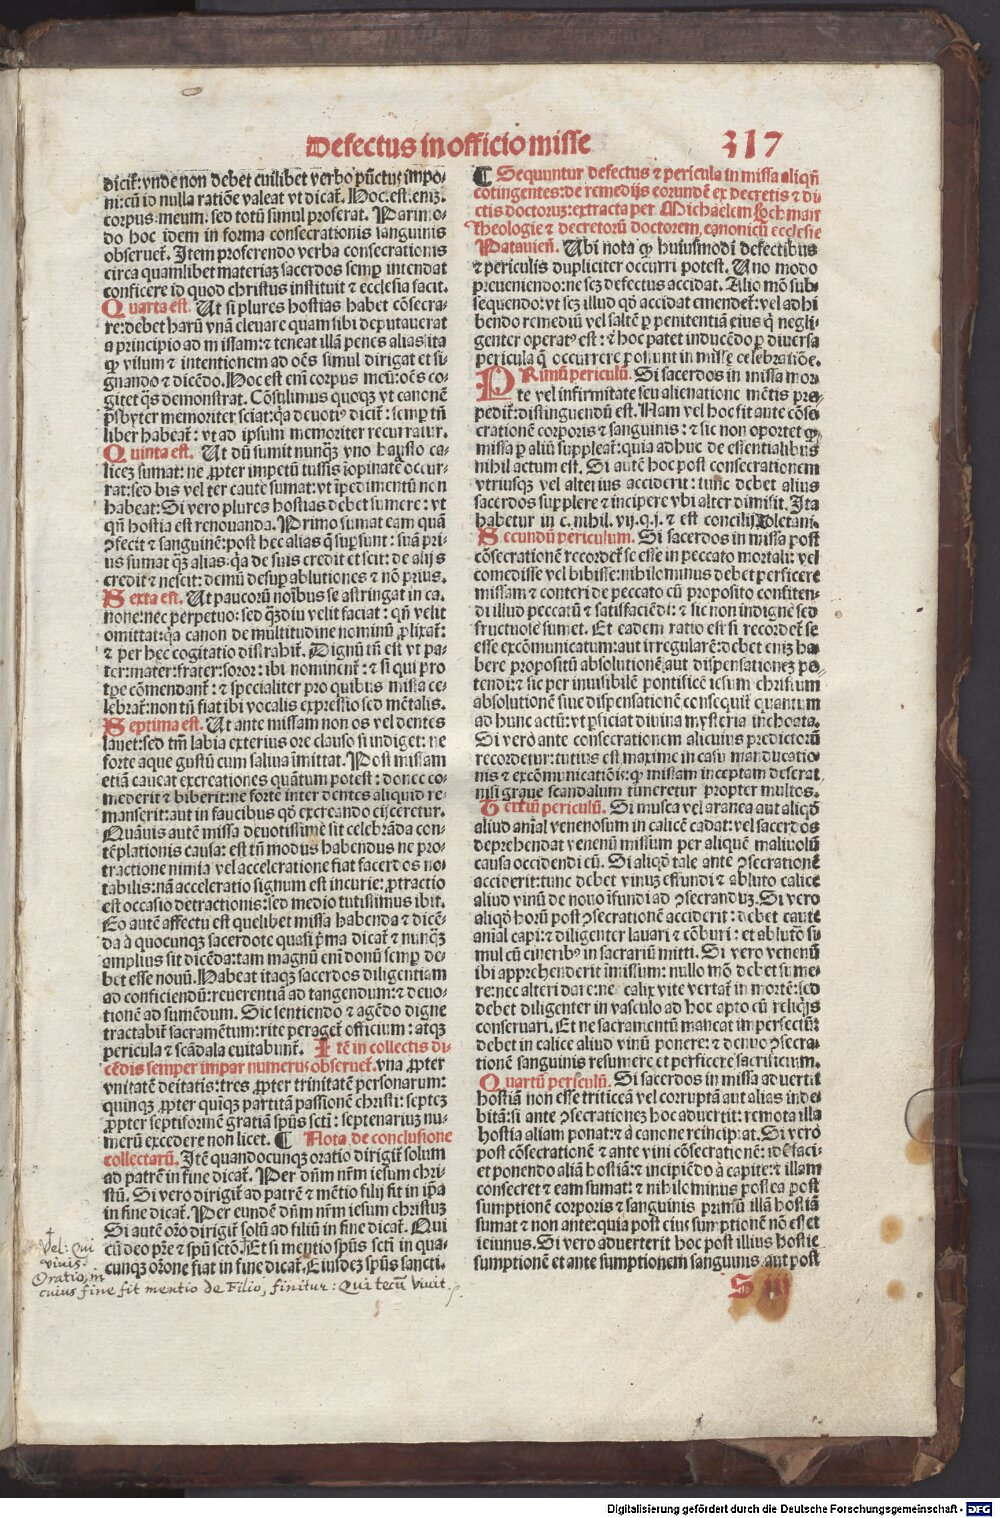 Defectus in officio misse 317
dicit᷑: vnde non debet cuilibet verbo pūctus impo-
ni: cū id nulla ratiōe valeat vt dicat᷑. Hoc. est. enim.
corpus. meum. sed totū simul proferat. Pari mo-
do hoc idem in forma consecrationis sanguinis
obseruet᷑. Item proferendo verba consecrationis
circa quamlibet materiaz sacerdos semp̲ intendat
conficere id quod christus instituit ⁊ ecclesia facit.
Quarta est. Ut si plures hostias habet cōsecra-
re: debet harū vnā eleuare quam sibi deputauerat
a principio ad missam: ⁊ teneat illā penes alias ita
ꝙ visum ⁊ intentionem ad oēs simul dirigat et si-
gnando ⁊ dicēdo. Hoc est eni̅ corpus meū: oēs co-
gitet qs̄ demonstrat. Cōsulimus quoqz vt canonē
p̄sbyter memoriter sciat: qꝛ deuotiꝰ dicit᷑: semp̲ tn̄
liber habeat᷑: vt ad ipsum memoriter recurratur.
Quinta est. Ut dū sumit nunqz̄ vno haustu ca-
licez sumat: ne ꝓpter impetū tussis īopinatē occur-
rat: sed bis vel ter caute sumat: vt īpedimentū non
habeat: Si vero plures hostias debet sumere: vt
qn̄ hostia est renouanda. Primo sumat eam quā
ꝯfecit ⁊ sanguinē: post hec alias q̄ supsunt: suā pri-
us sumat qz̄ alias. qꝛ de suis credit et scit: de alijs
credit ⁊ nescit: demū desup̲ ablutiones ⁊ nō prius.
Sexta est. Ut paucorū noībus se astringat in ca.
none: nec perpetuo: sed qz̄diu velit faciat: qn̄ velit
omittat: qꝛ canon de multitudine nominū ꝓlixat᷑:
⁊ per hec cogitatio distrahit᷑. Dignū tn̄ est vt pa-
ter: mater: frater: soror: ibi nominent᷑: ⁊ si qui pro
tꝑe cōmendant᷑: ⁊ specialiter pro quibus missa ce-
lebrat᷑: non tn̄ fiat ibi vocalis expressio sed mētalis.
Septima est. Ut ante missam non os vel dentes
lauet: sed tm̄ labia exterius ore clauso si indiget: ne
forte aque gustū cum saliua īmittat. Post missam
etiā caueat excreationes quātum potest: donec co-
mederit ⁊ biberit: ne forte inter dentes aliquid re-
manserit: aut in faucibus qd̄ excreando eijceretur.
Quāuis autē missa deuotissime sit celebrāda con-
tēplationis causa: est tn̄ modus habendus ne pro-
tractione nimia vel acceleratione fiat sacerdos no-
tabilis: nā acceleratio signum est incurie: ꝓtractio
est occasio detractionis: sed medio tutissimus ibit.
Eo autē affectu est quelibet missa habenda ⁊ dicē-
da à quocunqz sacerdote quasi p̄ma dicat᷑ ⁊ nunqz̄
amplius sit dicēda: tam magnū eni̅ donū semp̲ de-
bet esse nouū. Habeat itaqz sacerdos diligentiam
ad conficiendū: reuerentiā ad tangendum: ⁊ deuo-
tionē ad sumēdum. Sic sentiendo ⁊ agēdo digne
tractabit᷑ sacramētum: rite peraget᷑ officium: atqz
pericula ⁊ scādala euitabunt᷑. Itē in collectis di-
cēdis semper impar numerus obseruet᷑. vna ꝓpter
vnitatē deitatis: tres ꝓpter trinitatē personarum:
quinqz ꝓpter quīqz partitā passionē christi: septez
ꝓpter septiformē gratiā spūs scti: septenariuz nu-
merū excedere non licet. ¶ Nota de conclusione
collectarū. Itē quandocunqz oratio dirigit᷑ solum
ad patrē in fine dicat᷑. Per dn̄m nr̄m iesum chri-
stū. Si vero dirigit᷑ ad patrē ⁊ mētio filij fit in ip̄a
in fine dicat᷑. Per eundē dn̄m nr̄m iesum christuz
Si autē orō dirigit᷑ solū ad filiū in fine dicat᷑. Qui
cū deo pr̄e ⁊ spū sctō. Et si mentio spūs scti in qua-
cunqz orōne fiat in fine dicat᷑. Eiusdez spūs sancti.
† Vel: Qui
vivis.
Oratio, in
cuius fine fit mentio de Filio, finitur: Qui tecū vivit.
¶ Sequuntur defectus ⁊ pericula in missa aliqn̄
cōtingentes: de remedijs eorundē ex decretis ⁊ di
ctis doctoruz: extracta per Michaelem Lochmair
theologie ⁊ decretorū doctorem, canonicū ecclesie
Patauieñ. Ubi nota ꝙ huiusmodi defectibus
⁊ periculis dupliciter occurri potest. Uno modo
preueniendo: ne sez defectus accidat. Alio mō sub-
sequendo: vt sez illud qd̄ accidat emendet᷑: vel adhi
bendo remediū vel saltē ꝑ penitentiā eius q̄ negli-
genter operatꝰ est: ⁊ hoc patet inducēdo ꝑ diuersa
pericula q̄ occurrere possunt in misse celebratiōe.
Primū periculū. Si sacerdos in missa mor
te vel infirmitate seu alienatione mētis pre-
pedit᷑: distinguendū est. Nam vel hoc fit ante cōse
crationē corporis ⁊ sanguinis: ⁊ sic non oportet ꝙ
missa ꝑ aliū suppleat᷑: quia adhuc de essentialibus
nihil actum est. Si autē hoc post consecrationem
vtriusqz vel alterius acciderit: tunc debet alius
sacerdos supplere ⁊ incipere vbi alter dimisit. Ita
habetur in c. nihil. vij. q. j. ⁊ est concilij Toletani.
Secundū periculum. Si sacerdos in missa post
cōsecrationē recordet᷑ se esse in peccato mortali: vel
comedisse vel bibisse: nihilominus debet perficere
missam ⁊ conteri de peccato cū proposito confiten-
di illud peccatū ⁊ satisfaciēdi: ⁊ sic non indigne sed
fructuose sumet. Et eadem ratio est si recordet᷑ se
esse excōmunicatum: aut irregularē: debet eniz ha
bere propositū absolutionē aut dispensationez pe-
tendi: ⁊ sic per inuisibilē pontificē iesum christum
absolutionē siue dispensationē consequit᷑ quantum
ad hunc actū: vt ꝑficiat diuina mysteria inchoata.
Si vero ante consecrationem alicuius predictorū
recordetur: tutius est maxime in casu manducatio-
nis ⁊ excōmunicatiōis: ꝙ missam inceptam deserat
nisi graue scandalum timeretur propter multos.
Tertiū periculū. Si musca vel aranea aut aliqd̄
aliud anīal venenosum in calicē cadat: vel sacerdos
deprehendat venenū missum per aliquē maliuolū
causa occidendi eū. Si aliqd̄ tale ante ꝯsecrationē
acciderit: tunc debet vinuz effundi ⁊ abluto calice
aliud vinū de nouo īfundi ad ꝯsecranduz. Si vero
aliqd̄ horū post ꝯsecrationē acciderit: debet caute
anīal capi: ⁊ diligenter lauari ⁊ cōburi: et ablutō si
mul cū cineribꝰ in sacrariū mitti. Si vero venenū
ibi apprehenderit īmissum: nullo mō debet sume
re: nec alteri dare: ne calix vite vertat᷑ in mortē: sed
debet diligenter in vasculo ad hoc apto cū reliqs
conseruari. Et ne sacramentū maneat imperfectū:
debet in calice aliud vinū ponere: ⁊ denuo ꝯsecra-
tionē sanguinis resumere et perficere sacrificium.
Quartū periculū. Si sacerdos in missa aduertit
hostiā non esse triticeā vel corruptā aut alias inde
bitā: si ante ꝯsecrationez hoc aduertit: remota illa
hostia aliam ponat: ⁊ à canone reincipiat. Si vero
post cōsecrationē ⁊ ante vini cōsecrationē: idē faci-
et ponendo aliā hostiā: ⁊ incipiēdo à capite: ⁊ illam
consecret ⁊ eam sumat: ⁊ nihilominus postea post
sumptionē corporis ⁊ sanguinis primū illā hostiā
sumat ⁊ non ante: quia post eius sumptionē nō est et
ieiunus. Si vero aduerterit hoc post illius hostie
sumptionē et ante sumptionem sanguinis. aut post
S iij
Digitalisierung gefördert durch die Deutsche Forschungsgemeinschaft - DFG